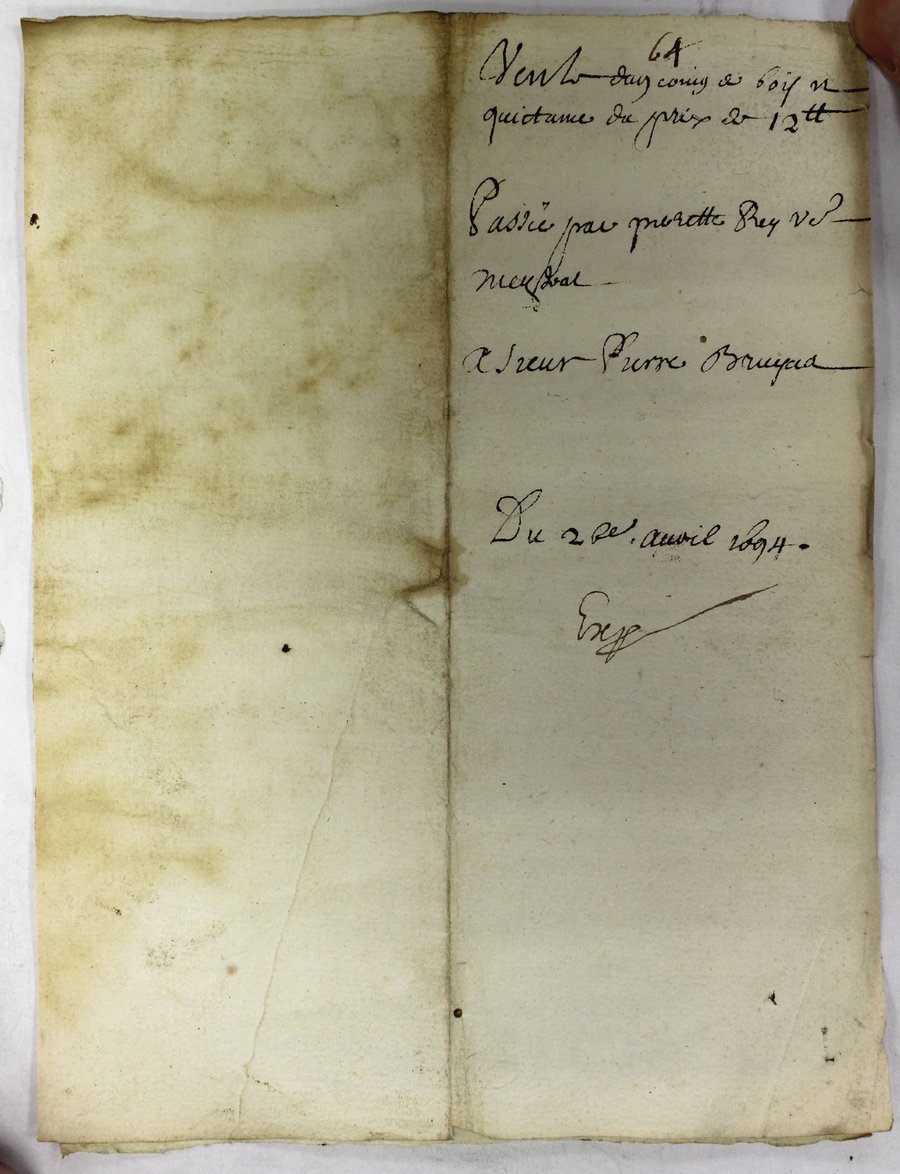 64
Vente dung coing de bois et
quictance du prix de 12 tt
Passée par pierette Rey ve
a sieur Pierre
Du 2 avril 1694.
Exp